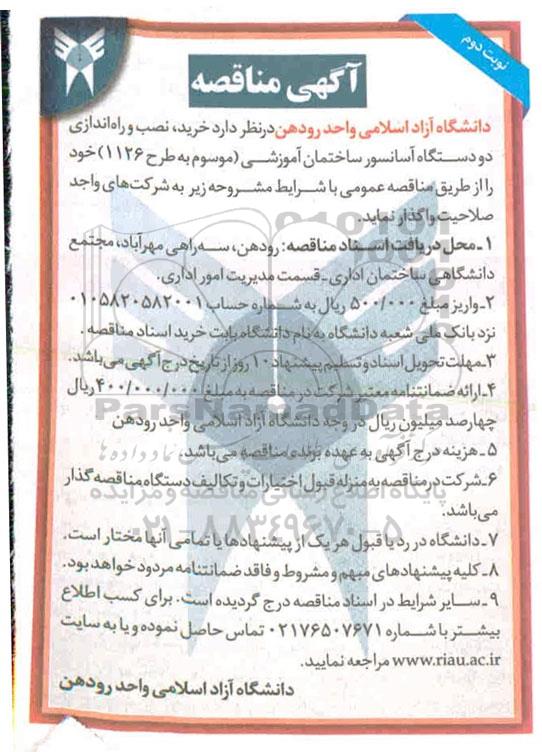 نوبت دوم
آگهی مناقصه
دانشگاه آزاد اسلامی واحد رودهن درنظر دارد خرید، نصب و راه‌اندازی
دو دستگاه آسانسور ساختمان آموزشی (موسوم به طرح ۱۱۲۶) خود
را از طریق مناقصه عمومی با شرایط مشروحه زیر به شرکت‌های واجد
صلاحیت واگذار نماید.
۱ـ محل دریافت اسناد مناقصه: رودهن، سه‌راهی مهرآباد، مجتمع
دانشگاهی ساختمان اداری ـ قسمت مدیریت امور اداری.
۲ـ واریز مبلغ ۵۰۰/۰۰۰ ریال به شماره حساب ۰۱۰۵۸۲۰۵۸۲۰۰۱
نزد بانک ملی شعبه دانشگاه به نام دانشگاه بابت خرید اسناد مناقصه.
۳ـ مهلت تحویل اسناد و تسلیم پیشنهاد ۱۰ روز از تاریخ درج آگهی می‌باشد.
۴ـ ارائه ضمانتنامه معتبر شرکت در مناقصه به مبلغ ۴۰۰/۰۰۰/۰۰۰ ریال
چهارصد میلیون ریال در وجه دانشگاه آزاد اسلامی واحد رودهن
۵ـ هزینه درج آگهی به عهده برنده مناقصه می‌باشد.
۶ـ شرکت در مناقصه به منزله قبول اختیارات و تکالیف دستگاه مناقصه گذار
می‌باشد.
۷ـ دانشگاه در رد یا قبول هر یک از پیشنهادها یا تمامی آنها مختار است.
۸ـ کلیه پیشنهادهای مبهم و مشروط و فاقد ضمانتنامه مردود خواهد بود.
۹ـ سایر شرایط در اسناد مناقصه درج گردیده است. برای کسب اطلاع
بیشتر با شماره ۰۲۱۷۶۵۰۷۶۷۱ تماس حاصل نموده و یا به سایت
www.riau.ac.ir مراجعه نمایید.
دانشگاه آزاد اسلامی واحد رودهن
ParsNamadData
پایگاه اطلاع رسانی مناقصه و مزایده
۰۲۱-۸۸۳۴۹۶۷۰-۵